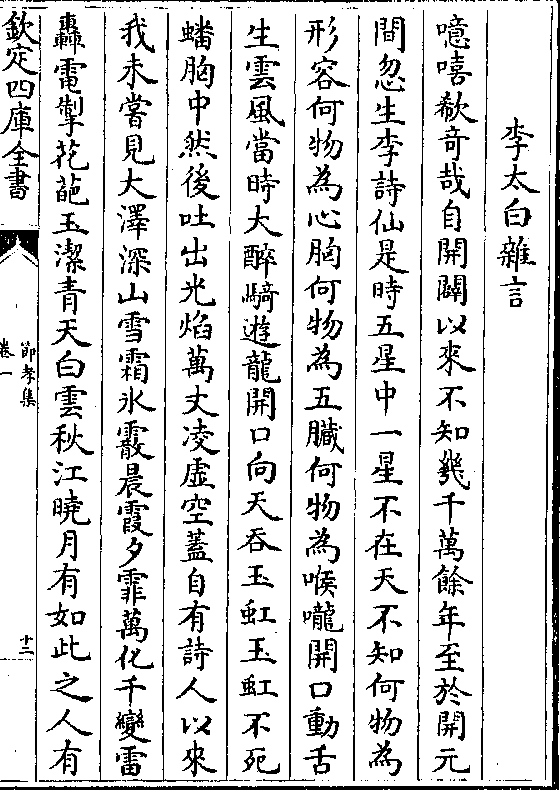 李太白雜言
噫嘻欷奇哉自開闢以來不知幾千萬餘年至於開元
間忽生李詩仙是時五星中一星不在天不知何物為
形容何物為心胸何物為五臟何物為喉嚨開口動舌
生雲風當時大醉騎遊龍開口向天吞玉虹玉虹不死
蟠胸中然後吐出光焰萬丈凌虛空蓋自有詩人以來
我未嘗見大澤深山雪霜氷霰晨霞夕霏萬化千變雷
轟電掣花葩玉潔青天白雲秋江曉月有如此之人有
欽定四庫全書
節孝集
卷一
十二